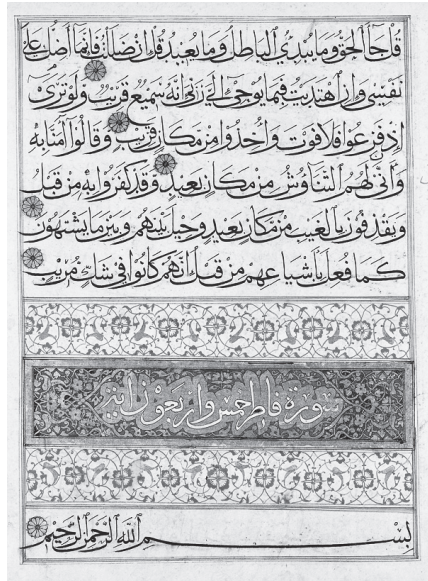 قُلْ جَآءَ الْحَقُّ وَمَا يُبْدِئُ الْبَاطِلُ وَمَا يُعِيدُ قُلْ اِنْ ضَلَلْتُ فَاِنَّمَا اَضِلُّ عَلٰى
نَفْسِي وَاِنِ اهْتَدَيْتُ فَبِمَا يُوحِي اِلَيَّ رَبِّي اِنَّهُ سَمِيعٌ قَرِيبٌ وَلَوْ تَرٰى
اِذْ فَزِعُوا فَلَا فَوْتَ وَاُخِذُوا مِنْ مَكَانٍ قَرِيبٍ وَقَالُوا اٰمَنَّا بِهِ
وَاَنّٰى لَهُمُ التَّنَاوُشُ مِنْ مَكَانٍ بَعِيدٍ وَقَدْ كَفَرُوا بِهِ مِنْ قَبْلُ
وَيَقْذِفُونَ بِالْغَيْبِ مِنْ مَكَانٍ بَعِيدٍ وَحِيلَ بَيْنَهُمْ وَبَيْنَ مَا يَشْتَهُونَ
كَمَا فُعِلَ بِاَشْيَاعِهِمْ مِنْ قَبْلُ اِنَّهُمْ كَانُوا فِي شَكٍّ مُرِيبٍ
سورة فاطر خمس واربعون اية
بِسْمِ اللّٰهِ الرَّحْمٰنِ الرَّحِيمِ